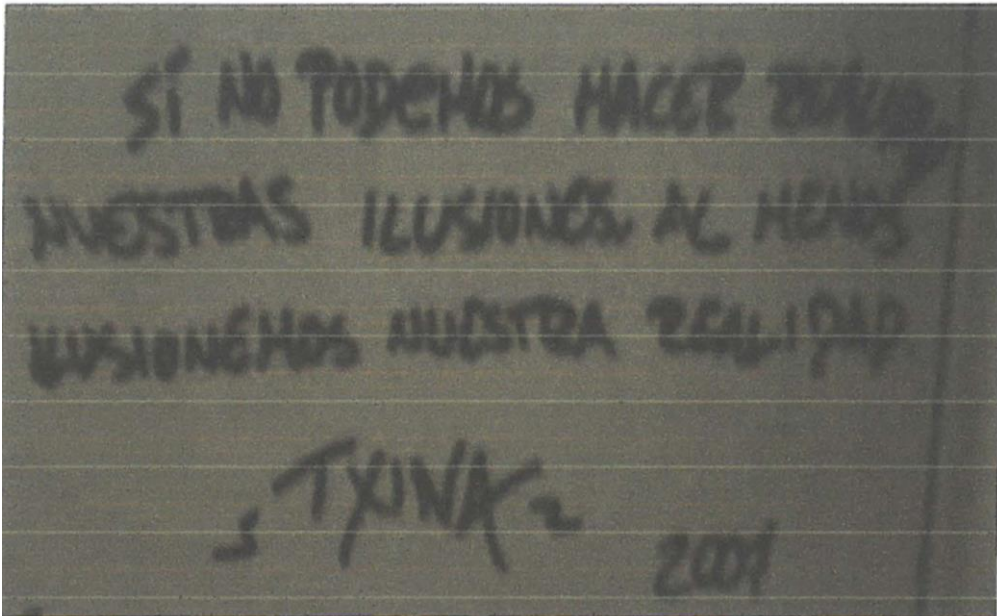 SÍ NO PODEMOS HACER
NUESTRAS ILUSIONES AL MENOS
ILUSIONEMOS NUESTRA REALIDAD
TXINA
2001